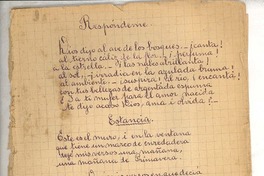 Respóndeme.
Dios dijo al ave de los bosques: ¡canta!
al tierno cáliz de la flor: ¡perfuma!
a la estrella: ¡
al sol: ¡irradia en la azulada bruma!
al ambiente: ¡suspira! al río, ¡encanta!
con tus bellezas de argentada espuma
I a ti mujer para el amor nacida
te dijo acaso Dios, ama i olvida?
Estancia.
Este es el muro, i en la ventana
que tiene un marco de enredadera
dejé mis versos una mañana,
una mañana de Primavera.